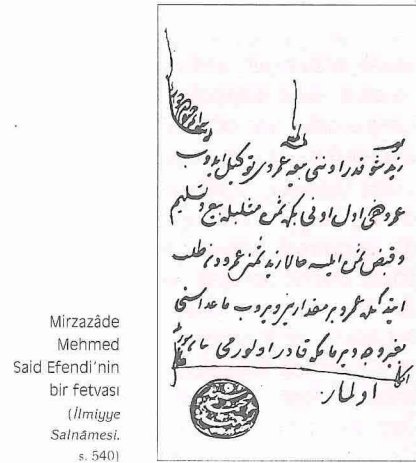 زيد شو قدر اوننى بيعه عمروى توكيل ايدوب
عمرو دخى اول اونى بكره ثمن مثليله بيع و تسليم
و قبض ثمن ايلسه حالا زيد ثمنى عمرودن طلب
ايتدكده عمرو بر مقدارين ويروب ماعداسنى
بغير وجه ويرمامكه قادر اولورمى
اولماز
Mirzazâde
Mehmed
Said Efendi'nin
bir fetvası
(İlmiyye
Salnâmesi.
s. 540)